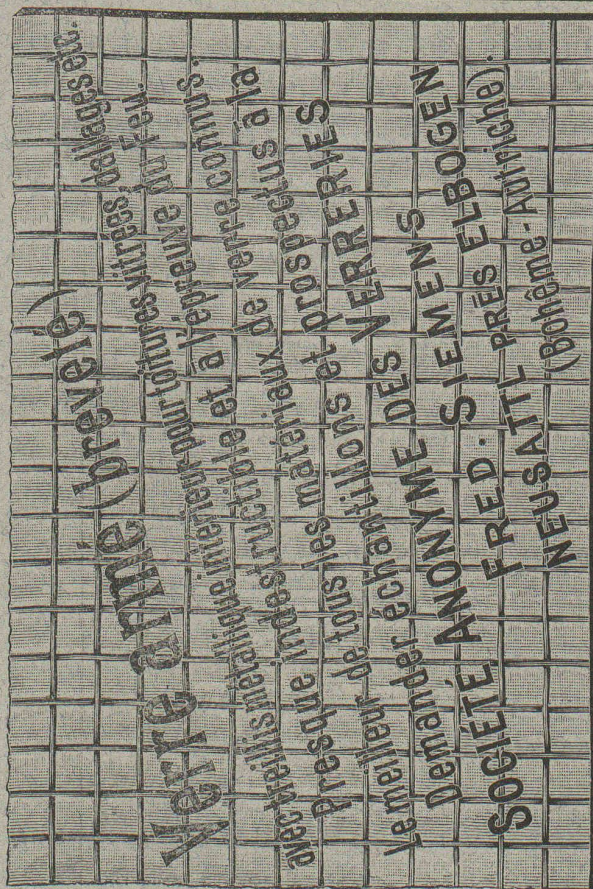 Verre armé (breveté)
avec treillis métallique intérieur pour toitures vitrées, dallages etc.
Presque indestructible et à l'épreuve du Feu.
Le meilleur de tous les matériaux de verre connus.
Demander échantillons et prospectus à la
SOCIÉTÉ ANONYME DES VERRERIES
FRED. SIEMENS
NEUSATTL PRÈS ELBOGEN
(Bohême-Autriche).